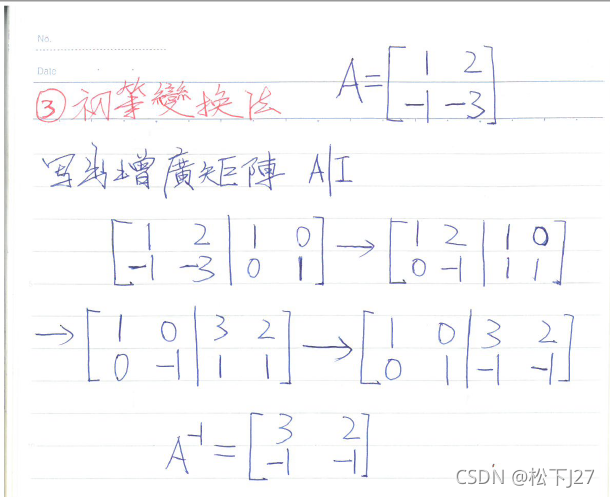 No.
Date
③初等變换法
A=[1 2
-1 -3]
写出增廣矩陣 A|I
[1 2 | 1 0
-1 -3 | 0 1] → [1 2 | 1 0
0 -1 | 1 1]
→ [1 0 | 3 2
0 -1 | 1 1] → [1 0 | 3 2
0 1 | -1 -1]
A⁻¹=[3 2
-1 -1]
CSDN @松下J27